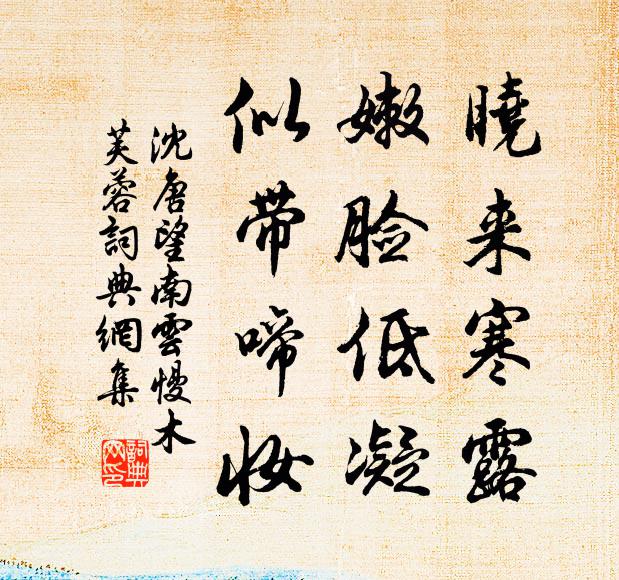 曉来寒露
嫩脸低凝
似带啼妆
沈唐望南雲慢木
芙蓉詞典網集
詞典網印